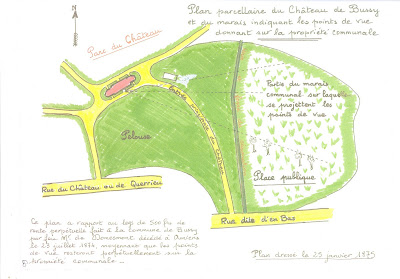 Plan parcellaire du Château de Bussy
et du marais indiquant les points de vue
donnant sur la propriété communale
Parc du Château
Partie du marais
communal sur laquelle
se projettent les
points de vue
Pelouse
Place publique
Rue du Château ou de Querrieu
Rue dite d'en Bas
Ce plan a rapport au legs de 500 fr de
rente perpétuelle fait à la commune de Bussy
par feu Mr de décédé à Amiens
le 23 juillet 1874, moyennant que les points
de vue resteront perpétuellement sur la
propriété communale
Plan dressé le 29 janvier 1875